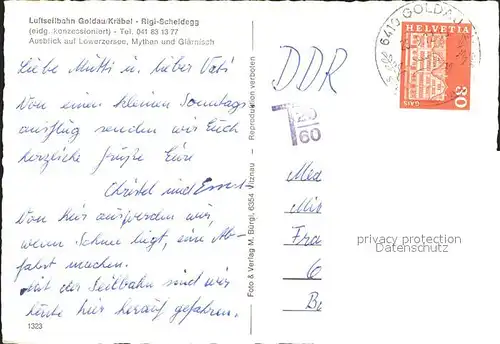 Luftseilbahn Goldau/Kräbel - Rigi-Scheidegg
(eidg. konzessioniert) - Tel. 041 83 13 77
Ausblick auf Lowerzersee, Mythen und Glärnisch
Liebe Mutti u. lieber Vati
Von einem kleinen Sonntags
ausflug senden wir Euch
herzliche Grüße Eure
Christel und
Von hier aus werden wir,
wenn Schnee liegt, eine Ab-
fahrt machen.
mit der Seilbahn sind wir
heute hier herauf gefahren.
1323
Foto & Verlag M. Bürgi, 6354 Vitznau — Reproduktion verboten
DDR
T 20/60
6410 GOLDAU
HELVETIA
80
GAIS
Med
Mis
Fra
6
Be
privacy protection
Datenschutz